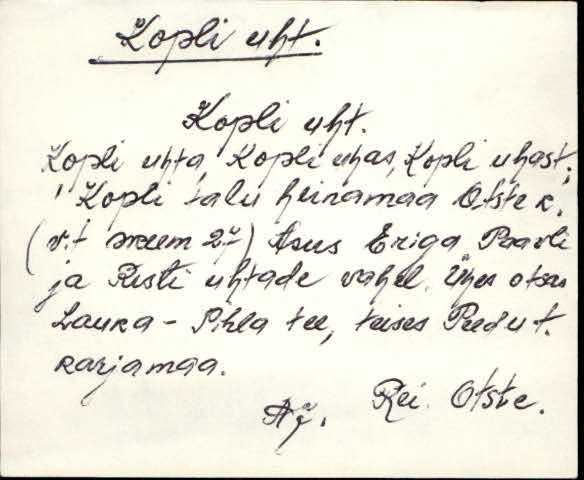 Kopli uht.
Kopli uht.
Kopli uhta, Kopli uhas, Kopli uhast;
Kopli talu heinamaa Otste k.
(v.t skeem 27) Asus Eriga Paavli
ja Risti uhtade vahel. Ühes otsas
Lauka - Pihla tee, teises Peedu t.
karjamaa.
Rei. Otste.